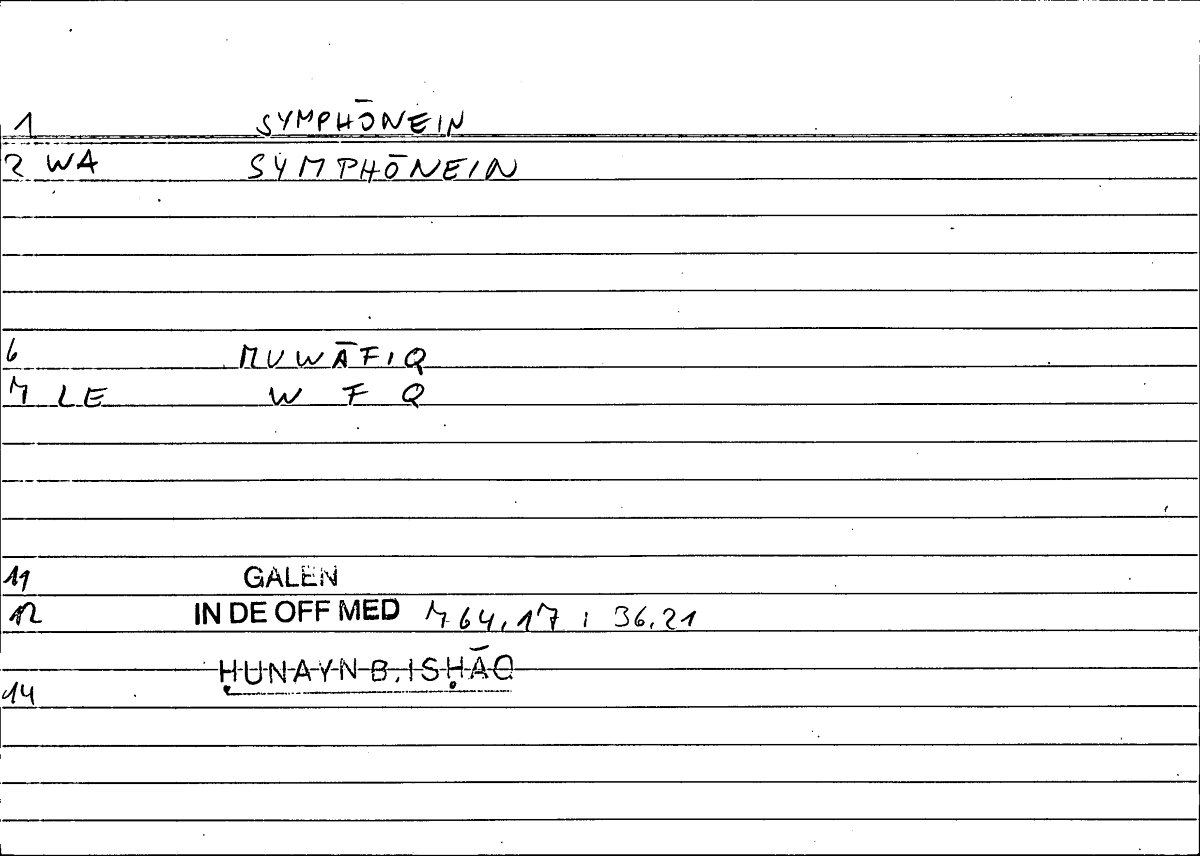 1 SYMPHŌNEIN
2 WA SYMPHŌNEIN
6 MUWĀFIQ
7 LE W F Q
11 GALEN
12 IN DE OFF MED 764,17 ; 36,21
ḤUNAYN B. ISḤĀQ
14